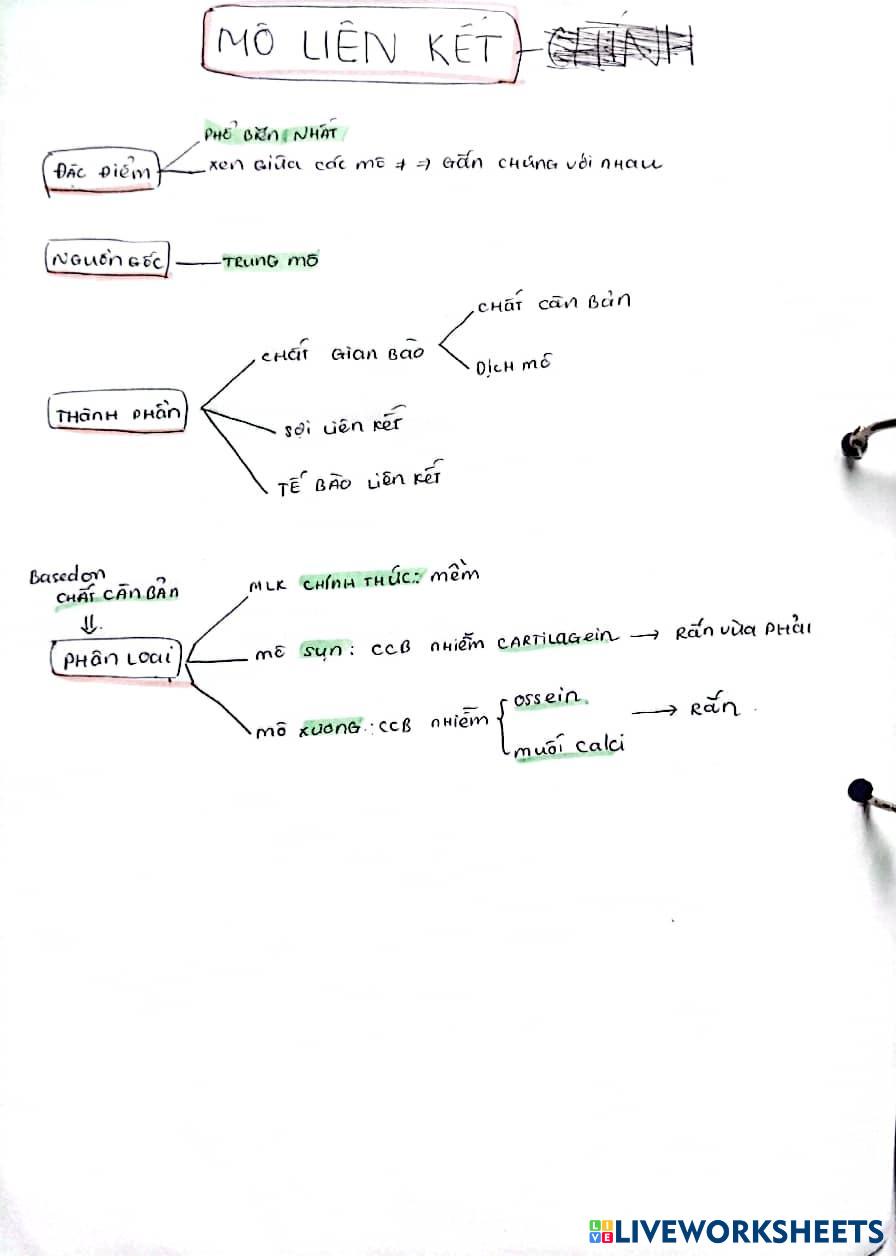 MÔ LIÊN KẾT - CHÍNH
PHỔ BIẾN NHẤT
ĐẶC ĐIỂM
XEN GIỮA CÁC MÔ ≠ => GẮN CHÚNG VỚI NHAU
NGUỒN GỐC — TRUNG MÔ
CHẤT CĂN BẢN
CHẤT GIAN BÀO
DỊCH MÔ
THÀNH PHẦN
SỢI LIÊN KẾT
TẾ BÀO LIÊN KẾT
Based on
CHẤT CĂN BẢN
⇓
MLK CHÍNH THỨC: MỀM
PHÂN LOẠI
MÔ SỤN: CCB NHIỄM CARTILAGEIN → RẮN VỪA PHẢI
MÔ XƯƠNG: CCB NHIỄM { OSSEIN → RẮN
MUỐI CALCI
LIVEWORKSHEETS